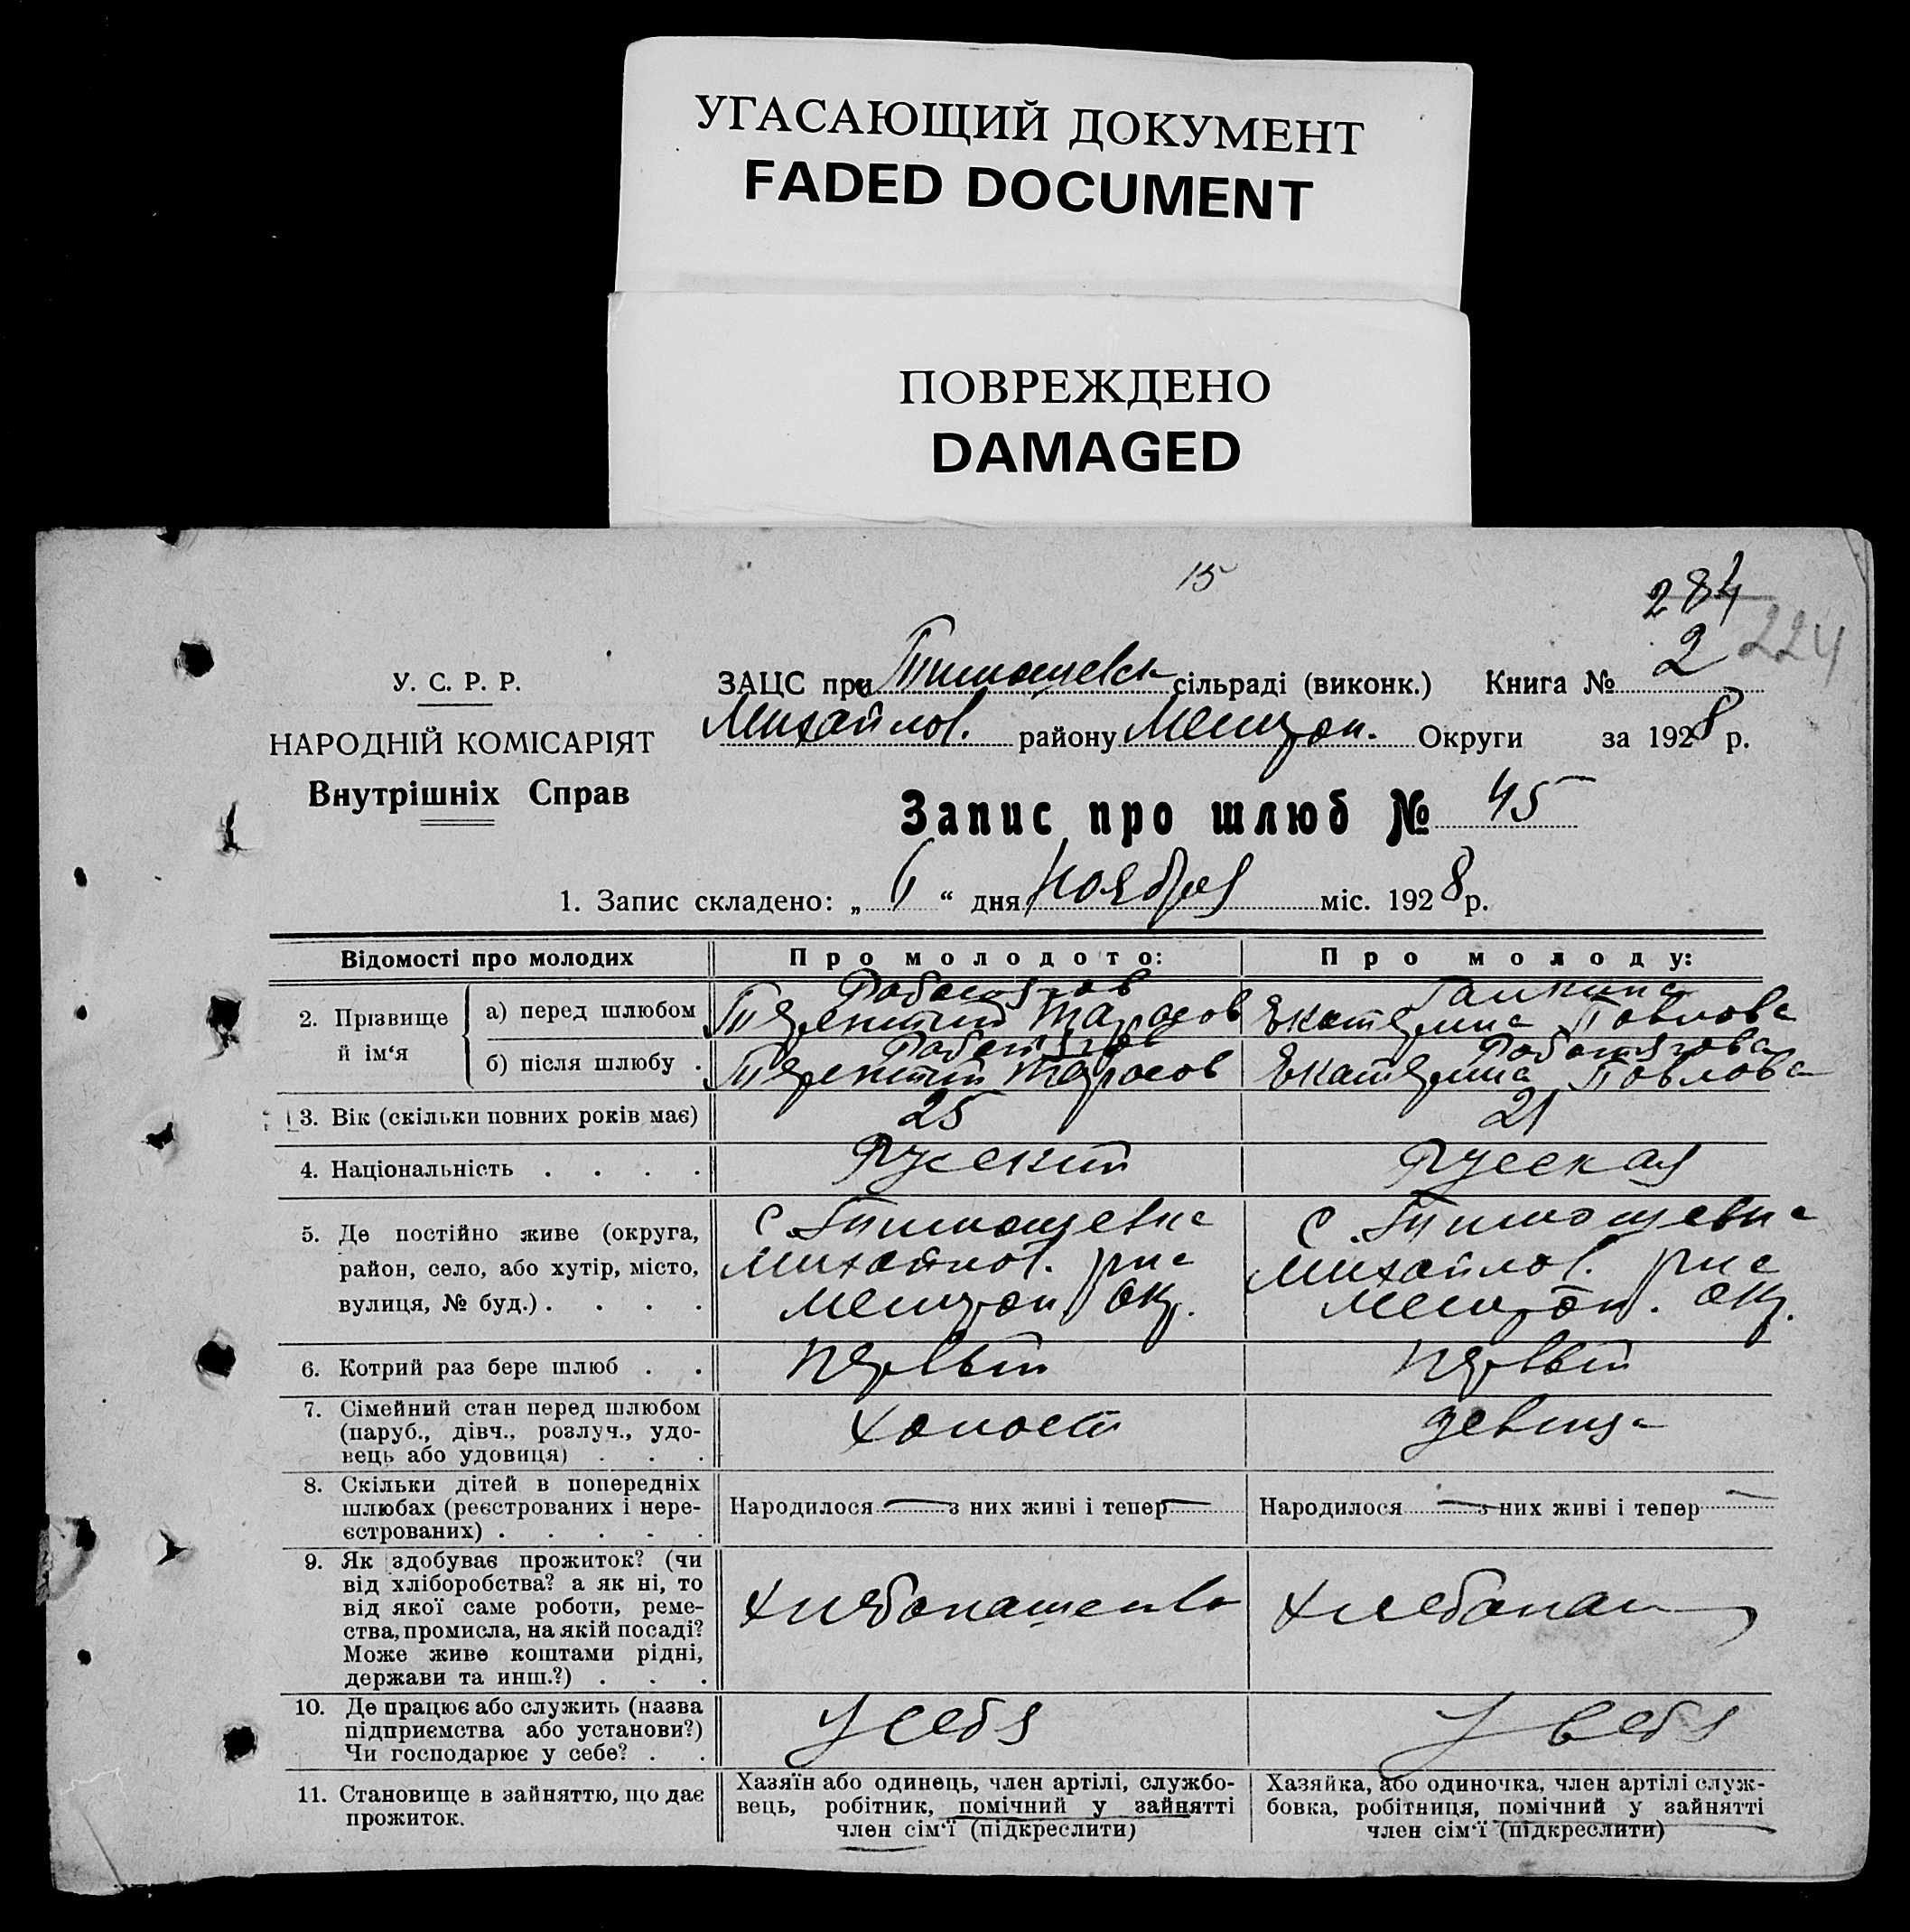 УГАСАЮЩИЙ ДОКУМЕНТ
FADED DOCUMENT
ПОВРЕЖДЕНО
DAMAGED
15
284
224
У. С. Р. Р.
НАРОДНІЙ КОМІСАРІЯТ
Внутрішніх Справ
ЗАЦС при Тимошевск сільраді (виконк.) Книга № 2
Михайлов. району Мелитоп. Округи за 1928 р.
Запис про шлюб № 45
1. Запис складено: „ 6 “ дня Ноября міс. 1928 р.
Відомості про молодих
Про молодого:
Про молоду:
2. Прізвище й ім‘я
а) перед шлюбом
Работягов
Терентий Тарасов
Галкина
Екатерина Павлова
б) після шлюбу .
Работягов
Терентий Тарасов
Работягова
Екатерина Павлова
3. Вік (скільки повних років має)
25
21
4. Національність . . . .
Русский
Русская
5. Де постійно живе (округа,
район, село, або хутір, місто,
вулиця, № буд.) . . . .
С. Тимошевка
Михайлов. р-на
Мелитоп. окр.
С. Тимошевка
Михайлов. р-на
Мелитоп. окр.
6. Котрий раз бере шлюб . .
первый
первый
7. Сімейний стан перед шлюбом
(паруб., дівч., розлуч., удо-
вець або удовиця) . . .
холост
девица
8. Скільки дітей в попередніх
шлюбах (реєстрованих і нере-
єстрованих) . . . . .
Народилося — з них живі і тепер —
Народилося — з них живі і тепер —
9. Як здобуває прожиток? (чи
від хліборобства? а як ні, то
від якої саме роботи, реме-
ства, промисла, на якій посаді?
Може живе коштами рідні,
держави та инш.?) . . .
хлебопашество
хлебопаш
10. Де працює або служить (назва
підприємства або установи?)
Чи господарює у себе? . .
У себя
У себя
11. Становище в зайняттю, що дає
прожиток.
Хазяїн або одинець, член артілі, службо-
вець, робітник, помічний у зайнятті
член сім‘ї (підкреслити)
Хазяйка, або одиночка, член артілі служ-
бовка, робітниця, помічний у зайнятті
член сім‘ї (підкреслити)